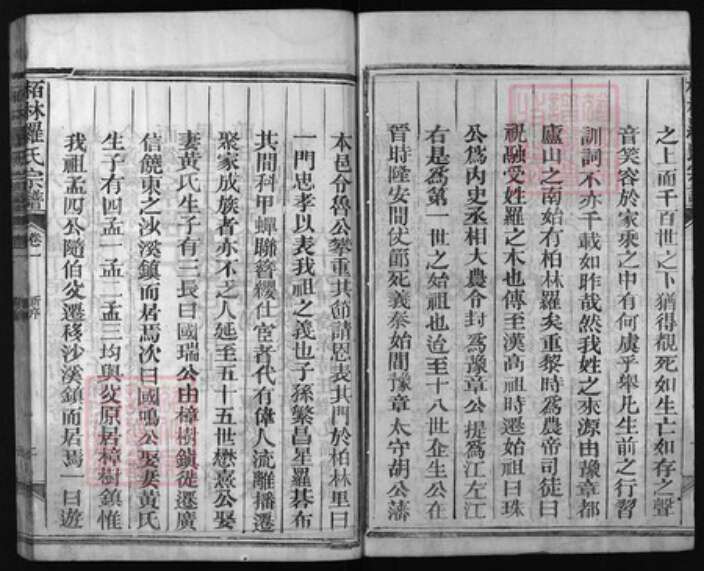 之上而千百世之下猶得覩死如生亡如存之聲
音笑容於家乘之中有何虞乎舉凡生前之行習
訓詞不亦千載如昨哉然我姓之來源由豫章都
廬山之南始有柏林羅矣重黎時為農帝司徒曰
祝融受姓羅之木也傳至漢高祖時遷始祖曰珠
公為內史丞相大農令封為豫章公提為江左江
右是為第一世之始祖也迨至十八世企生公在
晉時隆安間仗節死義秦始間豫章太守胡公藩
本邑令魯公摹重其節請恩表其門於柏林里曰
一門忠孝以表我祖之義也子孫繁昌星羅碁布
其間科甲蟬聯簪纓仕宦者代有偉人流離播遷
聚家成族者亦不乏人延至五十五世懋熹公娶
妻黃氏生子有三長曰國瑞公由樟樹鎮徙遷廣
信饒東之沙溪鎮而居焉次曰國鳴公娶妻黃氏
生子有四孟一孟二孟三均與父原居樟樹鎮惟
我祖孟四公隨伯父遷移沙溪鎮而居焉一曰遊
栢林羅氏宗譜 卷一 新序